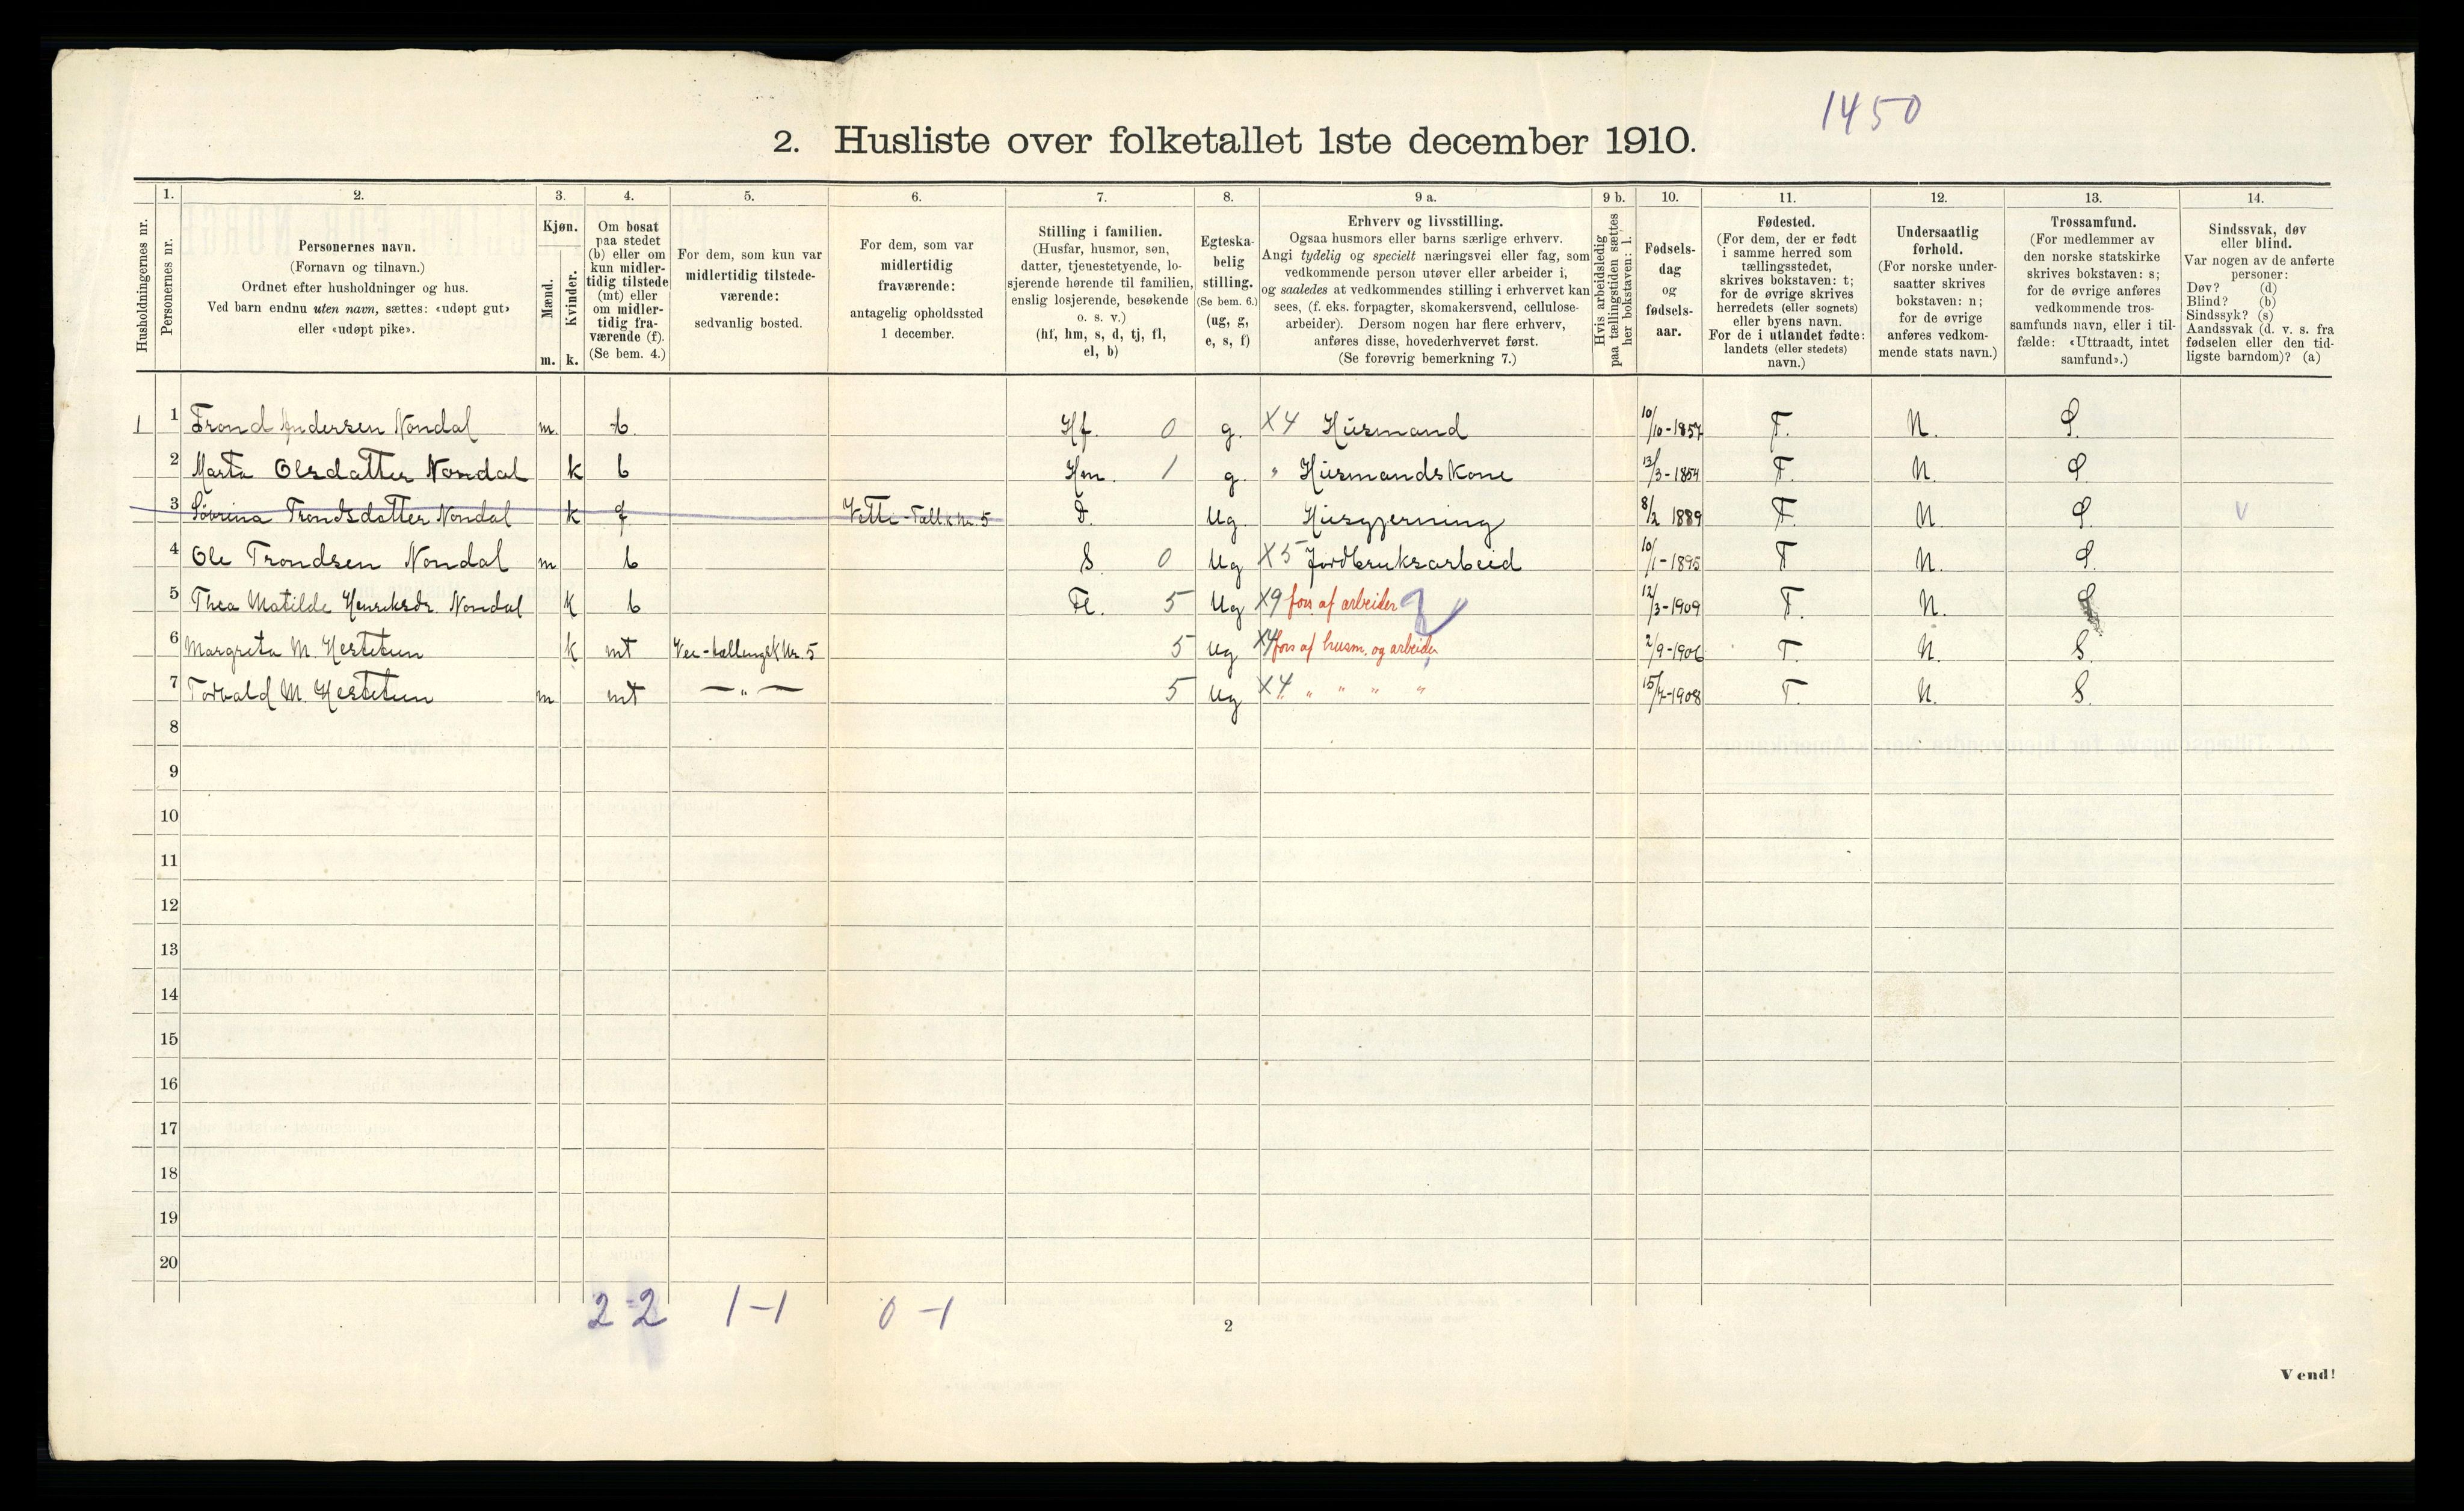 1450
2. Husliste over folketallet 1ste december 1910.
1. 2. 3. 4. 5. 6. 7. 8. 9 a. 9 b. 10. 11. 12. 13. 14.
Husholdningernes nr.
Personernes nr.
Personernes navn.
(Fornavn og tilnavn.)
Ordnet efter husholdninger og hus.
Ved barn endnu uten navn, sættes: «udøpt gut»
eller «udøpt pike».
Kjøn.
Mænd.
Kvinder.
m. k.
Om bosat
paa stedet
(b) eller om
kun midler-
tidig tilstede
(mt) eller
om midler-
tidig fra-
værende (f).
(Se bem. 4.)
For dem, som kun var
midlertidig tilstede-
værende:
sedvanlig bosted.
For dem, som var
midlertidig
fraværende:
antagelig opholdssted
1 december.
Stilling i familien.
(Husfar, husmor, søn,
datter, tjenestetyende, lo-
sjerende hørende til familien,
enslig losjerende, besøkende
o. s. v.)
(hf, hm, s, d, tj, fl,
el, b)
Egteska-
belig
stilling.
(Se bem. 6.)
(ug, g,
e, s, f)
Erhverv og livsstilling.
Ogsaa husmors eller barns særlige erhverv.
Angi tydelig og specielt næringsvei eller fag, som
vedkommende person utøver eller arbeider i,
og saaledes at vedkommendes stilling i erhvervet kan
sees, (f. eks. forpagter, skomakersvend, cellulose-
arbeider). Dersom nogen har flere erhverv,
anføres disse, hovederhvervet først.
(Se forøvrig bemerkning 7.)
Hvis arbeidsledig
paa tællingstiden sættes
her bokstaven: l.
Fødsels-
dag
og
fødsels-
aar.
Fødested.
(For dem, der er født
i samme herred som
tællingsstedet,
skrives bokstaven: t;
for de øvrige skrives
herredets (eller sognets)
eller byens navn.
For de i utlandet fødte:
landets (eller stedets)
navn.)
Undersaatlig
forhold.
(For norske under-
saatter skrives
bokstaven: n;
for de øvrige
anføres vedkom-
mende stats navn.)
Trossamfund.
(For medlemmer av
den norske statskirke
skrives bokstaven: s;
for de øvrige anføres
vedkommende tros-
samfunds navn, eller i til-
fælde: «Uttraadt, intet
samfund».)
Sindssvak, døv
eller blind.
Var nogen av de anførte
personer:
Døv? (d)
Blind? (b)
Sindssyk? (s)
Aandssvak (d. v. s. fra
fødselen eller den tid-
ligste barndom)? (a)
1 1 Trond Andersen Nondal m. b. Hf. 0 g. X4 Husmand 10/10-1857 T. N. S.
2 Marta Olsdatter Nondal k b Hm. 1 g. " Husmandskone 13/3-1854 T. N. S
3 Søvrina Trondsdatter Nondal k f Vetti-Tællk Nr. 5 D. Ug. Husgjerning 8/2 1889 T. N. S. v
4 Ole Trondsen Nondal m b S. 0 Ug X5 Jordbruksarbeid 10/1-1895 T N. S.
5 Thea Matilde Henriksdr. Nondal k b Fl. 5 Ug X9 fors. af arbeider 12/3-1909 T. N. S
6 Margreta M. Hestetun k mt Vee-tællingsk Nr. 5 5 Ug X4 fors af husm. og arbeider 2/9-1906 T. N. S.
7 Torvald M. Hestetun m mt — " — 5 Ug X4 " " " " " 15/7-1908 T. N. S.
8
9
10
11
12
13
14
15
16
17
18
19
20
2-2 1-1 0-1
2
Vend!